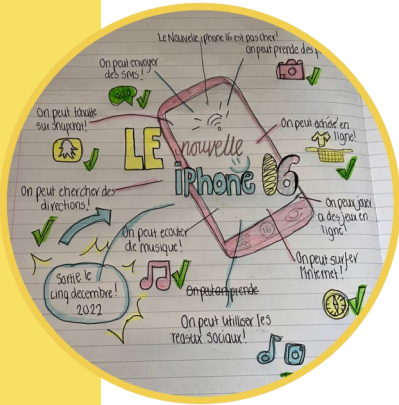 Le Nouvelle iphone 16 est pas cher!
On peut envoyer
des sms!
on peut prendre des
On peut tchatte
sur snapchat!
LE nouvelle
iPhone 16
On peut en
ligne!
On peut chercher des
directions!
On peux jouer
a des jeux en
ligne!
On peut ecouter
de musique!
On peut surfer
l'internet!
Sortie le
cinq decembre!
2022
On peut on prende
On peut utiliser les
reseaux sociaux!